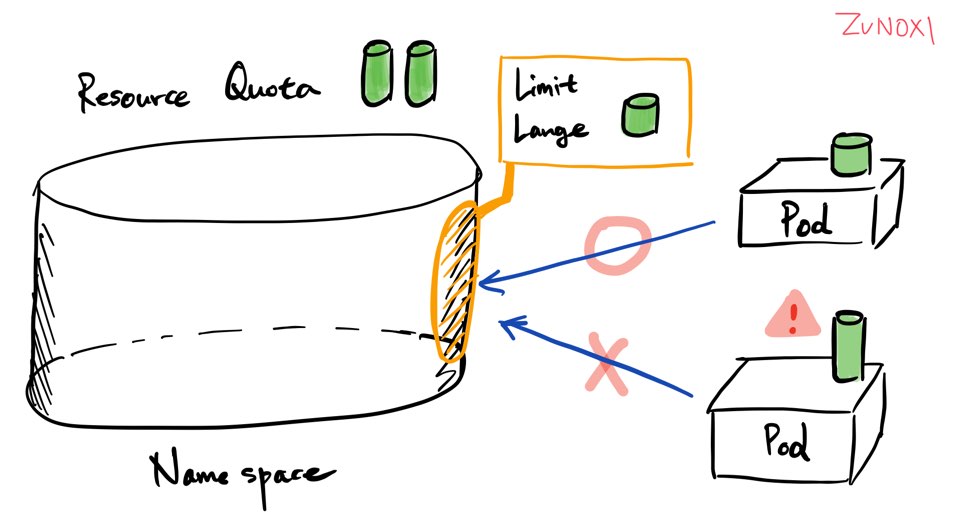 ZUNOXI
Resource Quota
Limit
Lange
Pod
Pod
!
Name space